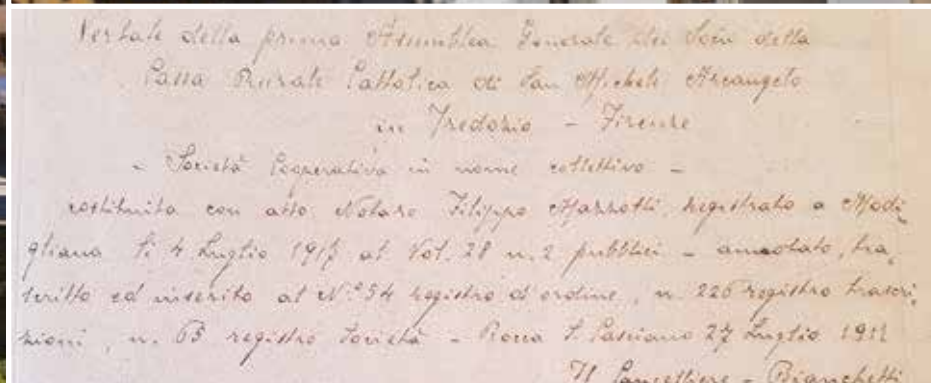 Verbale della prima Assemblea Generale dei Soci della
Cassa Rurale Cattolica di San Michele Arcangelo
in Tredozio - Firenze
- Società Cooperativa in nome collettivo -
costituita con atto Notaro Filippo Mazzotti, registrato a Modi
gliana li 4 Luglio 1913 al Vol. 28 n. 2 pubblici - annotato, tra,
scritto ed inserito al N.° 54 registro d'ordine, n. 226 registro trascri,
zioni, n. 63 registro Società - Rocca S. Casciano 27 Luglio 1913
Il Cancelliere - Bianchetti